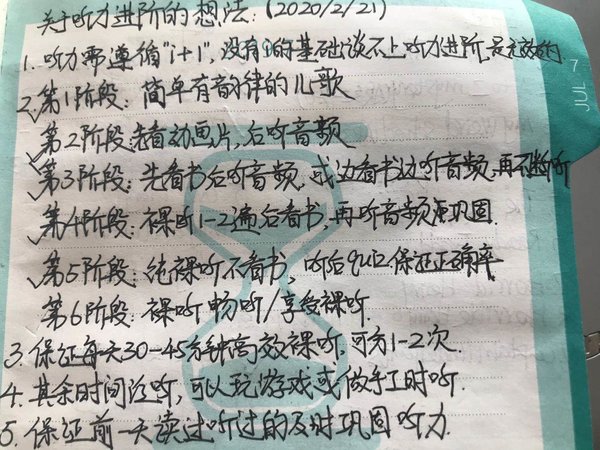 关于听力进阶的想法:(2020/2/21)
1. 听力需遵循"i+1",没有i的基础谈不上听力进阶,是无效的.
2. ✓第1阶段:简单有韵律的儿歌
✓第2阶段先看动画片,后听音频
✓第3阶段:先看书后听音频,或边看书边听音频,再不断听
✓第4阶段:裸听1-2遍后看书,再听音频巩固.
✓第5阶段:纯裸听不看书 听后quiz.保证正确率
第6阶段:裸听 畅听/享受裸听.
3. 保证每天30-45分钟高效裸听,可分1-2次.
4. 其余时间泛听,可以玩游戏或做手工时听.
5. 保证前一天读过听过的及时巩固听力.
7
JUL